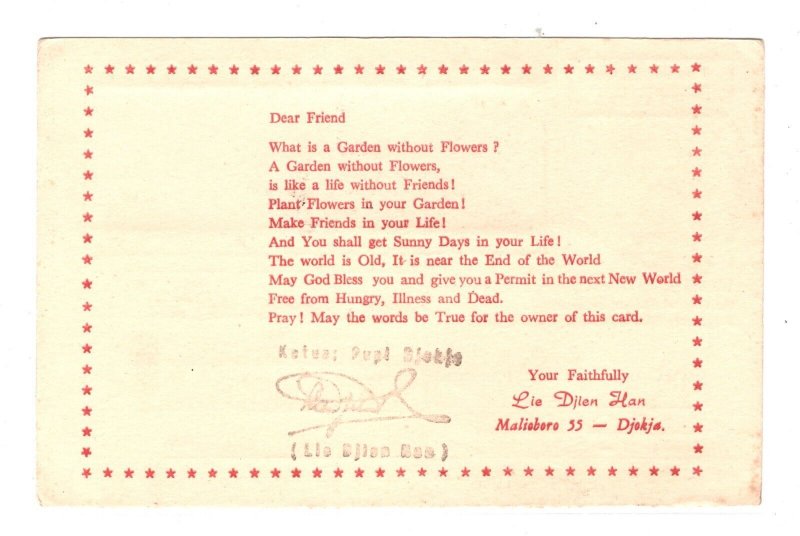 Dear Friend
What is a Garden without Flowers ?
A Garden without Flowers,
is like a life without Friends!
Plant Flowers in your Garden!
Make Friends in your Life!
And You shall get Sunny Days in your Life!
The world is Old, It is near the End of the World
May God Bless you and give you a Permit in the next New World
Free from Hungry, Illness and Dead.
Pray! May the words be True for the owner of this card.
Ketua; Pupi Djokja
(Lie Djien Han)
Your Faithfully
Lie Djien Han
Malioboro 55 — Djokja.